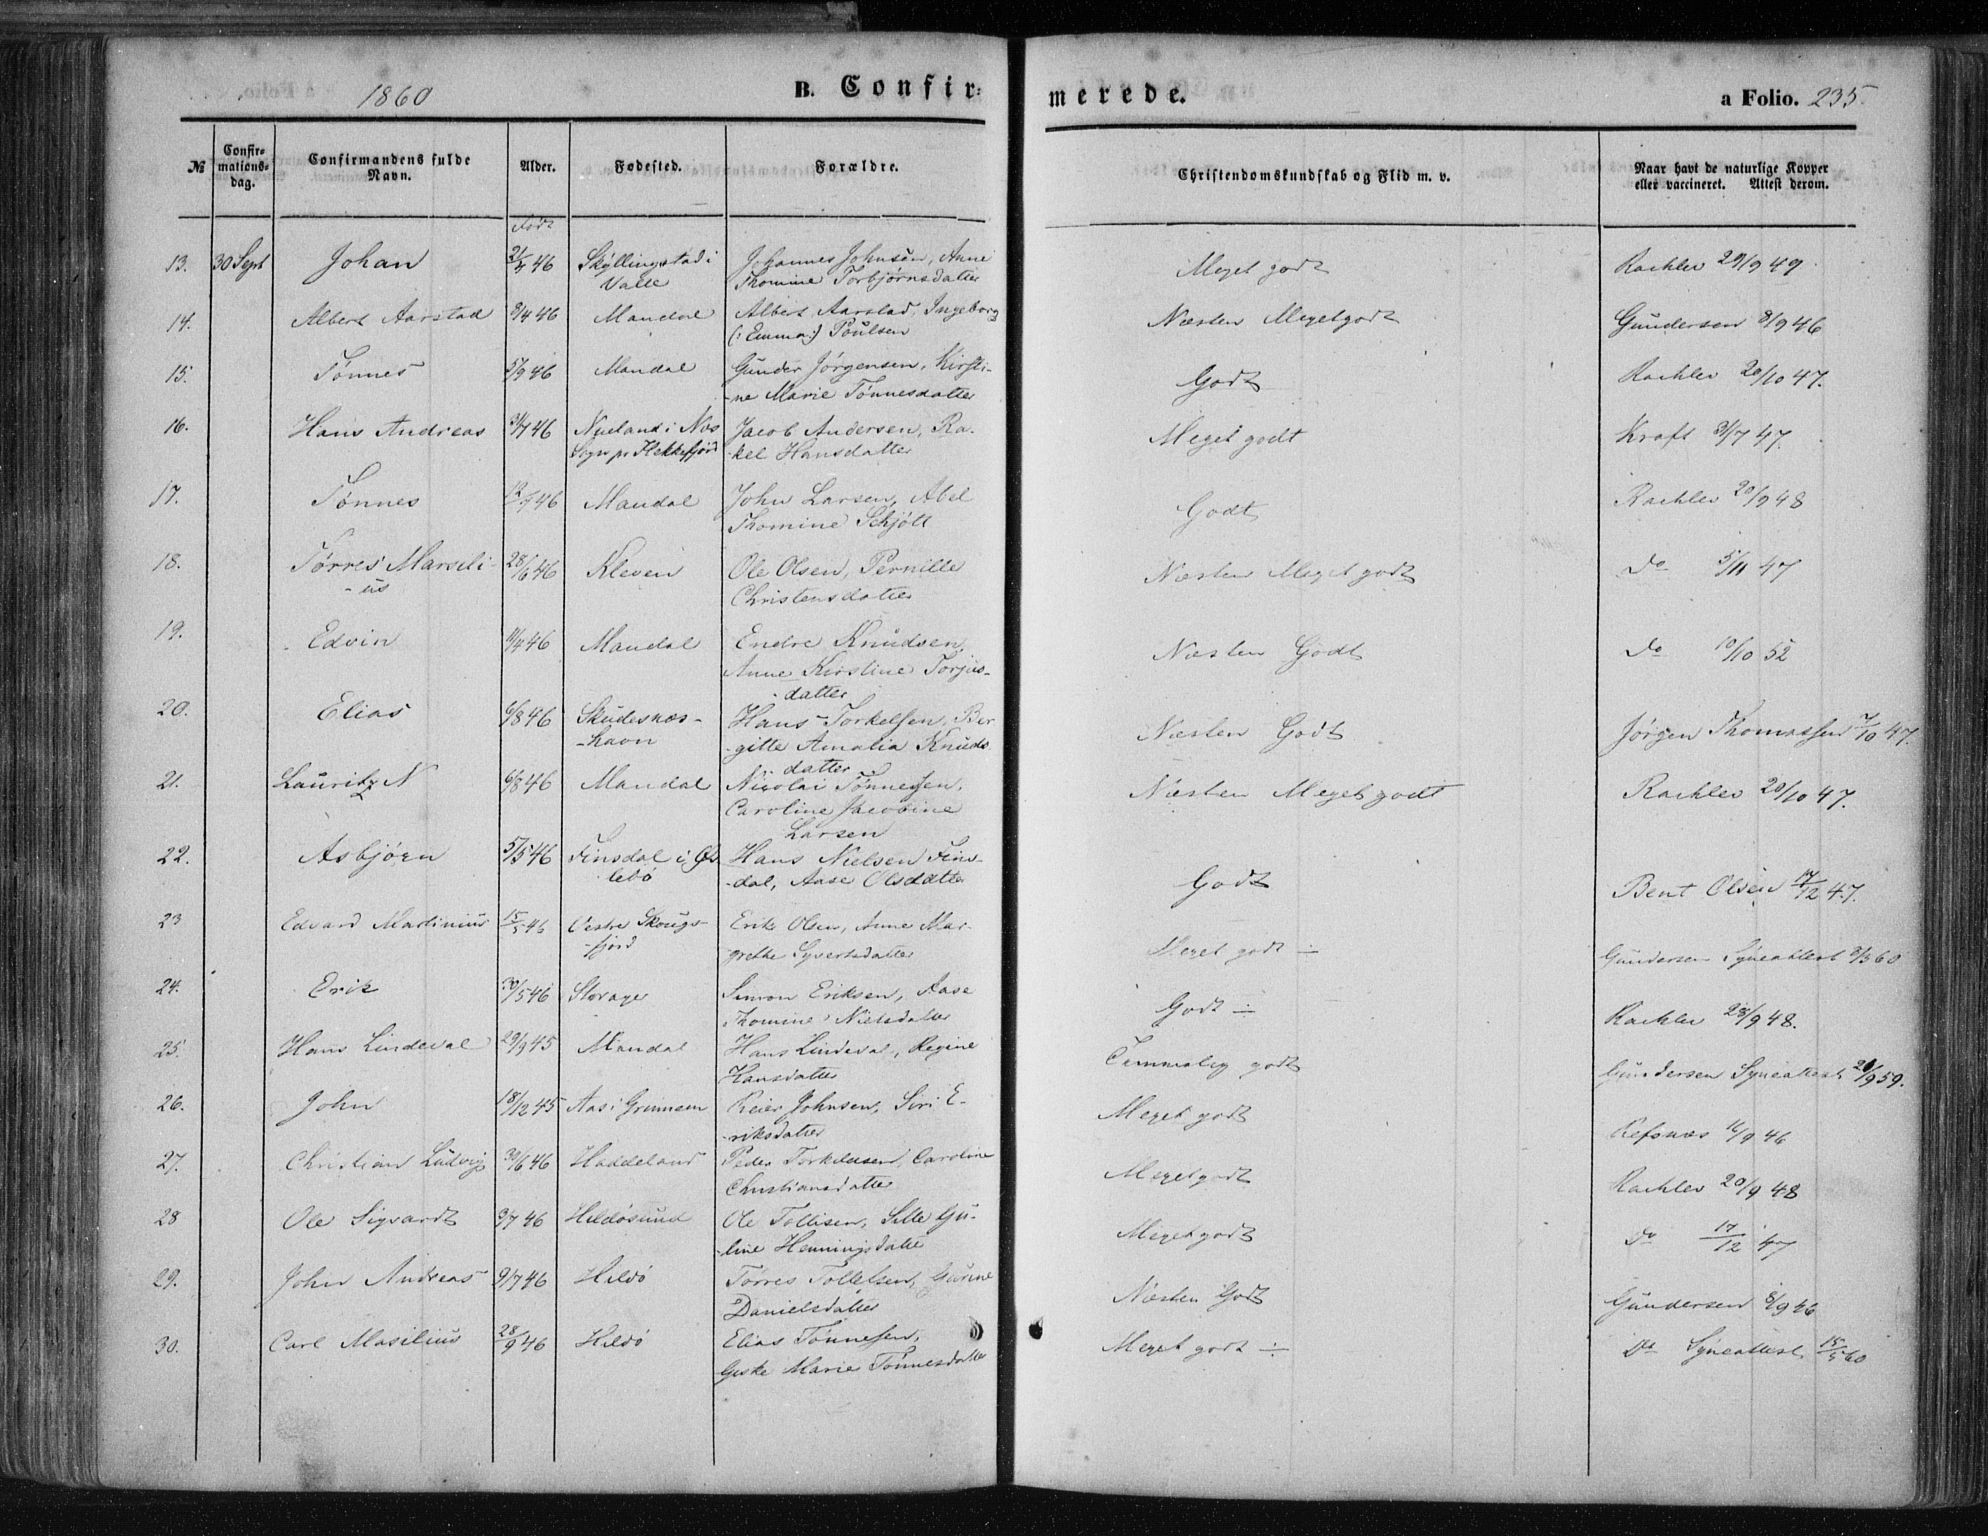 1860 B. Confir= merede. a Folio. 235.
№ Confir=mations=dag. Confirmandens fulde Navn. Alder. Fødested. Forældre. Christendomskundskab og Flid m. v. Naar havt de naturlige Kopper eller vaccineret. Attest derom.
Født
13. 30 Sept Johan 46 Skyllingstad i Johannes Johnsen, Anne Meget godt Rachlev 29/9 49
Valle Thomine Torbjørnsdatter
14. Albert Aarstad 8/4 46 Mandal Albert Aarstad, Ingeborg Næsten Meget godt Gundersen 8/9 46
(: Emma :) Poulsen
15. Tønnes 5/9 46 Mandal Gunder Jørgensen, Kirsti- Godt Rachlev 20/10 47.
-ne Marie Tønnesdatter
16. Hans Andreas 46 Nueland i Næs Jacob Andersen, Ra- Meget godt Kraft 3/7 47.
Sogn pr Flekkefjord -kel Hansdatter
17. Tønnes 46 Mandal John Larsen, Abel Godt Rachlev 20/9 48
Thomine Schjøtt
18. Tørres Marseli- 28/6 46 Kleven Ole Olsen, Pernille Næsten Meget godt Do 5/11 47
-us Christensdatter
19. Edvin 11/4 46 Mandal Endre Knudsen, Næsten Godt Do 10/10 52
Anne Kirstine Torjus-
-datter
20. Elias 6/8 46 Skudesnæs- Hans Torkelsen, Ber Næsten Godt Jørgen Thomassen 7/10 47.
-havn -gitte Amalia Knuds
datter
21. Lauritz N 6/8 46 Mandal Nicolai Tønnessen, Næsten Meget godt Rachlev 20/10 47.
Caroline Jacobine
Larsen
22. Asbjørn 5/5 46 Finsdal i Øs Hans Nielsen Fins- Godt Bent Olsen 17/12 47.
lebö -dal, Aase Olsdatter
23 Edvard Martinius 15/5 46 Vestre Skougs- Erik Olsen, Anne Mar- Meget godt ÷ Gundersen Synsattest 3/5 60
-fjord grethe Syvertsdatter
24. Erik 30/5 46 Storager Simon Eriksen, Aase Godt ÷ Rachlev 28/9 48.
Thomine Nielsdatter
25. Hans Lindeval 29/9 45 Mandal Hans Lindeval, Regine Temmelig godt Gundersen Synsattest 20/9 59.
Hansdatter
26. John 18/12 45 Aas i Grinnem Reier Johnsen, Siri E- Meget godt Refsnæs 16/9 46
-riksdatter
27. Christian Ludvig 30/6 46 Haddeland Peder Torkildsen, Caroline Meget godt Rachlev 20/9 48
Christiansdatter
28 Ole Sigvardt 3/7 46 Hildøsund Ole Tollisen, Sille Gu- Meget godt Do 17/12 47
-line Henningsdatter
29. John Andreas 9/7 46 Hildö Tørres Tollefsen, Gurine Næsten Godt Gundersen 8/9 46
Danielsdatter
30. Carl Masilius 28/9 46 Hildö Elias Tønnesen, Meget godt ÷ Do Synsattest 15/5 60
Geske Marie Tønnesdatter